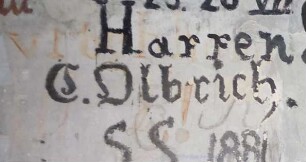 25. 26 VII
Harren
C. Olbrich.
SS 1881